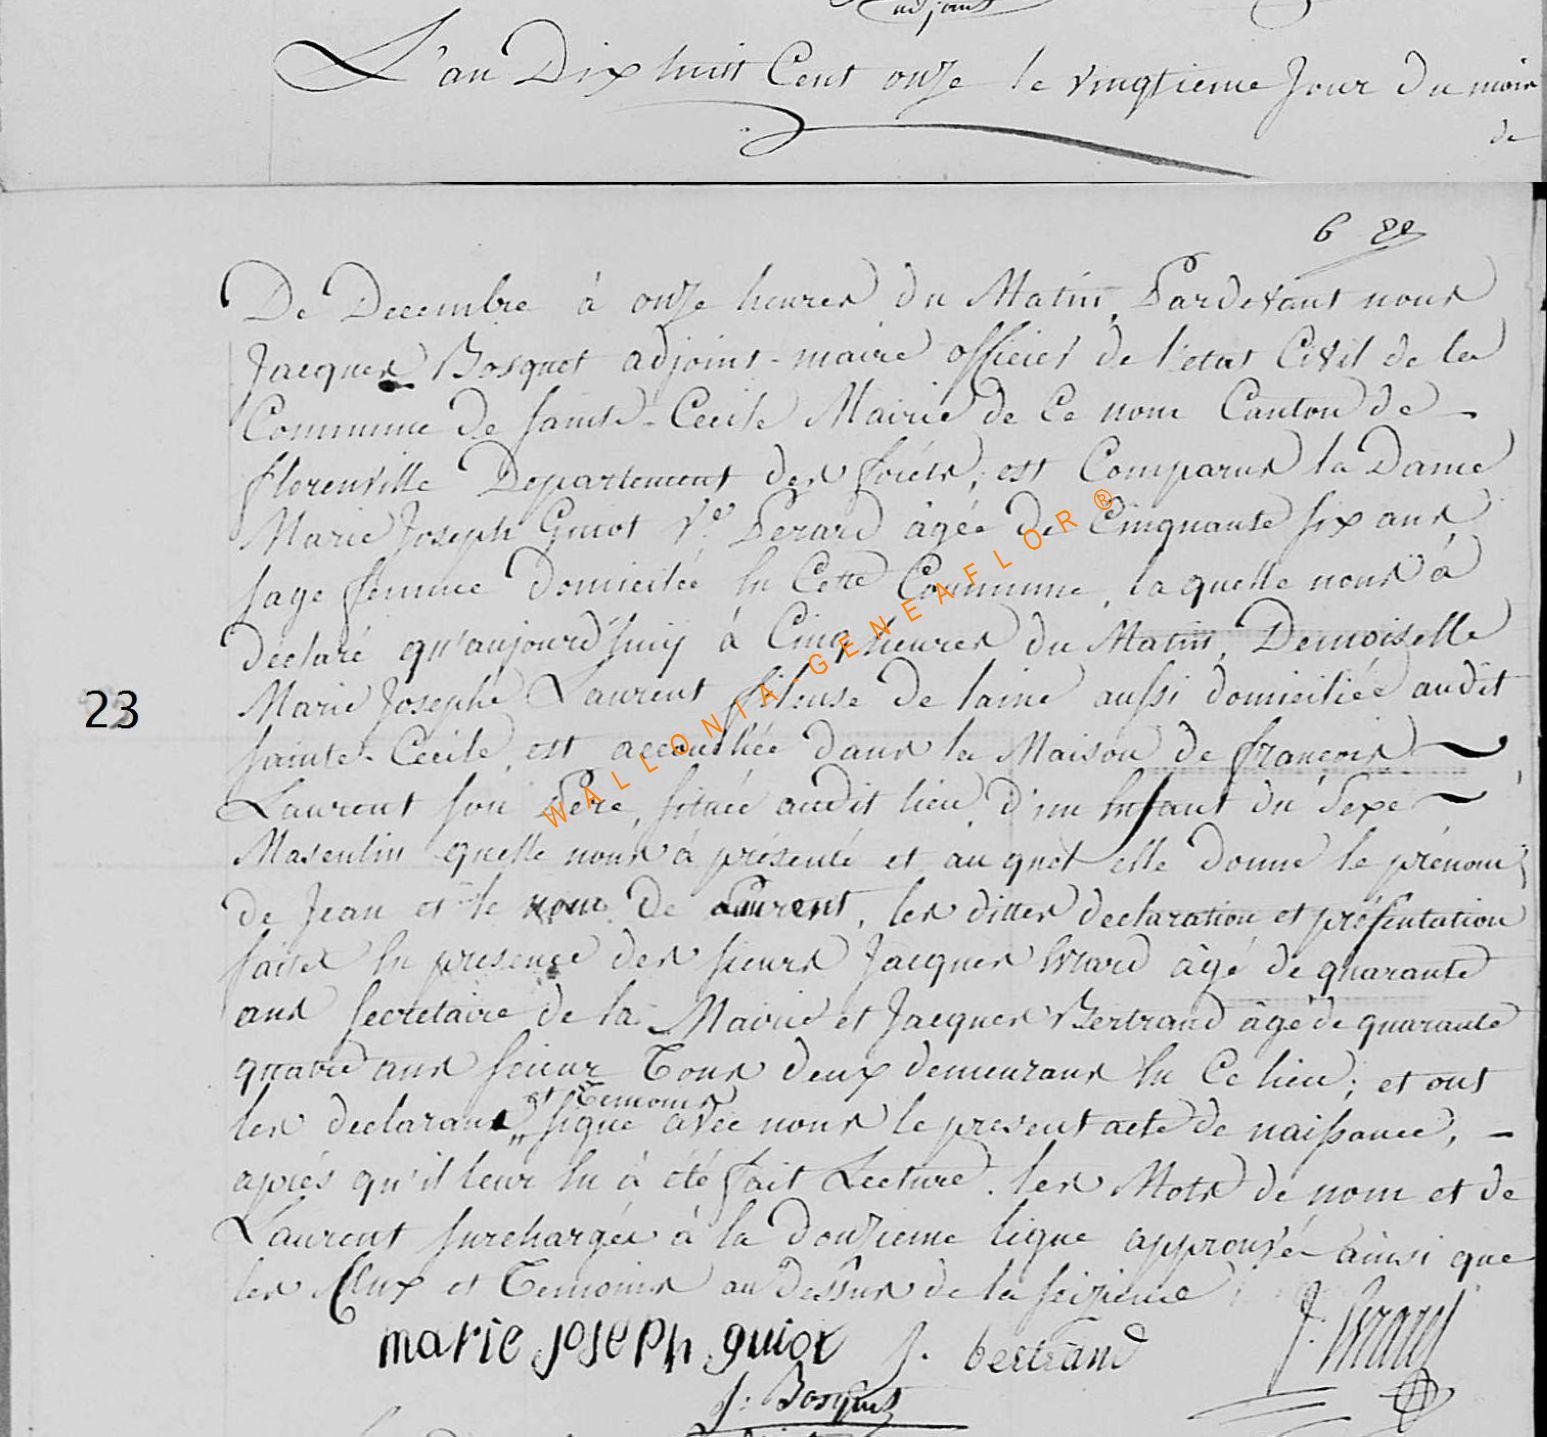 adjoint
L'an Dix huit Cent onze le vingtieme Jour du mois
de
De Decembre à onze heures du Matin, Pardevant nous
Jacques Bosquet adjoint-maire officier de l'etat Civil de la
Commune de Sainte-Cecile Mairie de Ce nom Canton de
florenville Departement des foréts, est Comparus la Dame
Marie Joseph Guiot Ve Perard âgée de Cinquante six ans
sage femme domiciliée En Cette Commune, laquelle nous à
déclaré qu'aujourd'huy à Cinq heures du Matin, Demoiselle
Marie Josephe Laurent fileuse de laine aussi domiciliée audit
23
Sainte-Cecile, est accouchée dans la Maison de françois
Laurent son Pere, située audit lieu, d'un Enfant du Sexe
Masculin quelle nous à présenté et au quel elle donne le prénom
de Jean et le nom De Laurent, les dittes declaration et présentation
faites En presence des sieurs Jacques Evrard âgé de quarante
ans secretaire de la Mairie et Jacques Bertrand âgé de quarante
quatre ans scieur Tous deux demeurans En Ce lieu; et ont
et Temoins
les declarans signé avec nous le present acte de naissance,
après qu'il leur En à été fait Lecture. les Mots de nom et de
Laurent surchargés à la douzieme ligne approuvés ainsi que
les et Temoins au dessus de la seizieme
marie joseph guiot J. bertrand J. Evrard
J. Bosquet
WALLONIA-GENEAFLOR®